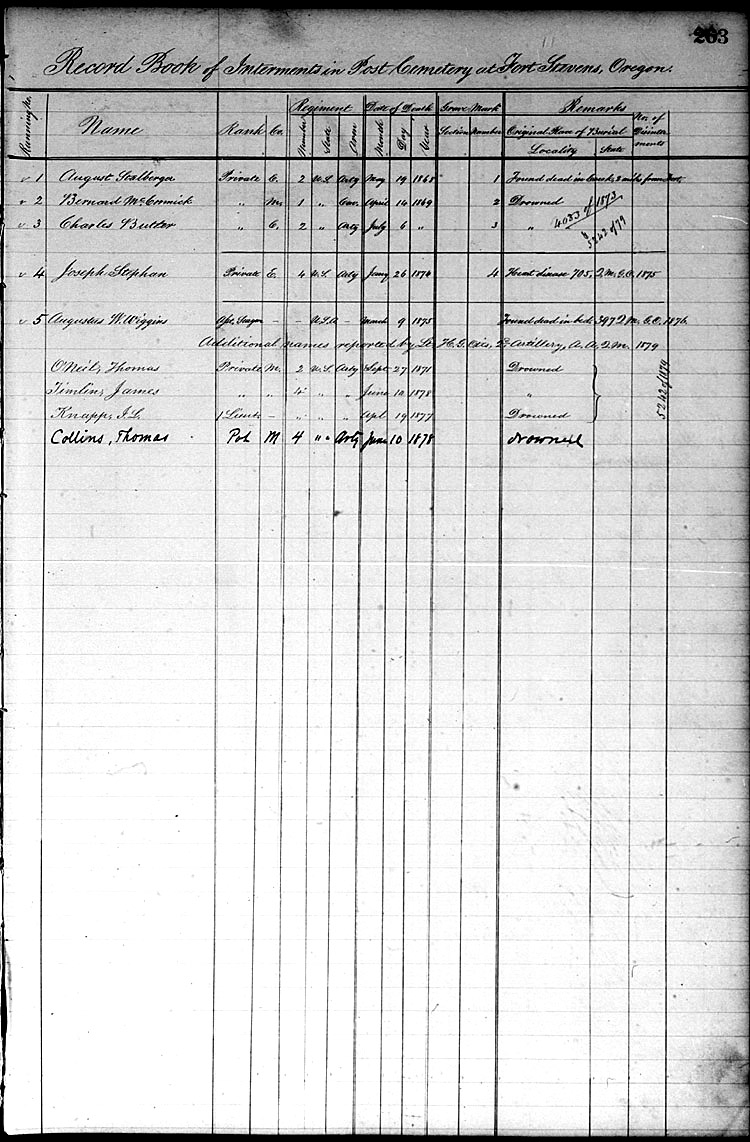 203
Record Book of Interments in Post Cemetery at Fort Stevens, Oregon.
Running No. Name Rank Co. Regiment Date of Death Grave Mark Remarks No. of Disinterments
Number State Arm Month Day Year Section Number Original Place of Burial
Locality State
✓ 1 August Stalberga Private C. 2 U.S. Arty May 19 1868 1 Found dead in 2 miles from Fort,
✓ 2 Bernard McCormick " M. 1 " Cav. April 14 1869 2 Drowned
✓ 3 Charles Butter " C. 2 " Arty July 6 " 3 "
4083 of 1873
5242 of 79
✓ 4 Joseph Stephan Private E. 4 U.S. Arty 26 1874 4 Heart disease 705, Q.M.G.O. 1875
✓ 5 Augustus W. Wiggins - - U.S.A - March 9 1875 Found dead in bed 397 Q.M.G.O. 1876
Additional names reported by Lt H.G. Otis, Artillery, A.A.Q.M. 1879
O'Neil, Thomas Private M. 2 U.S. Arty Sept 27 1871 Drowned
Timlin, James " " 4 " " June 10 1878 "
Knapp, I.L. 1 Lieut - " " " Apl 19 1877 Drowned
5242 of 1879
Collins, Thomas Pvt M 4 " " Arty June 10 1878 drowned